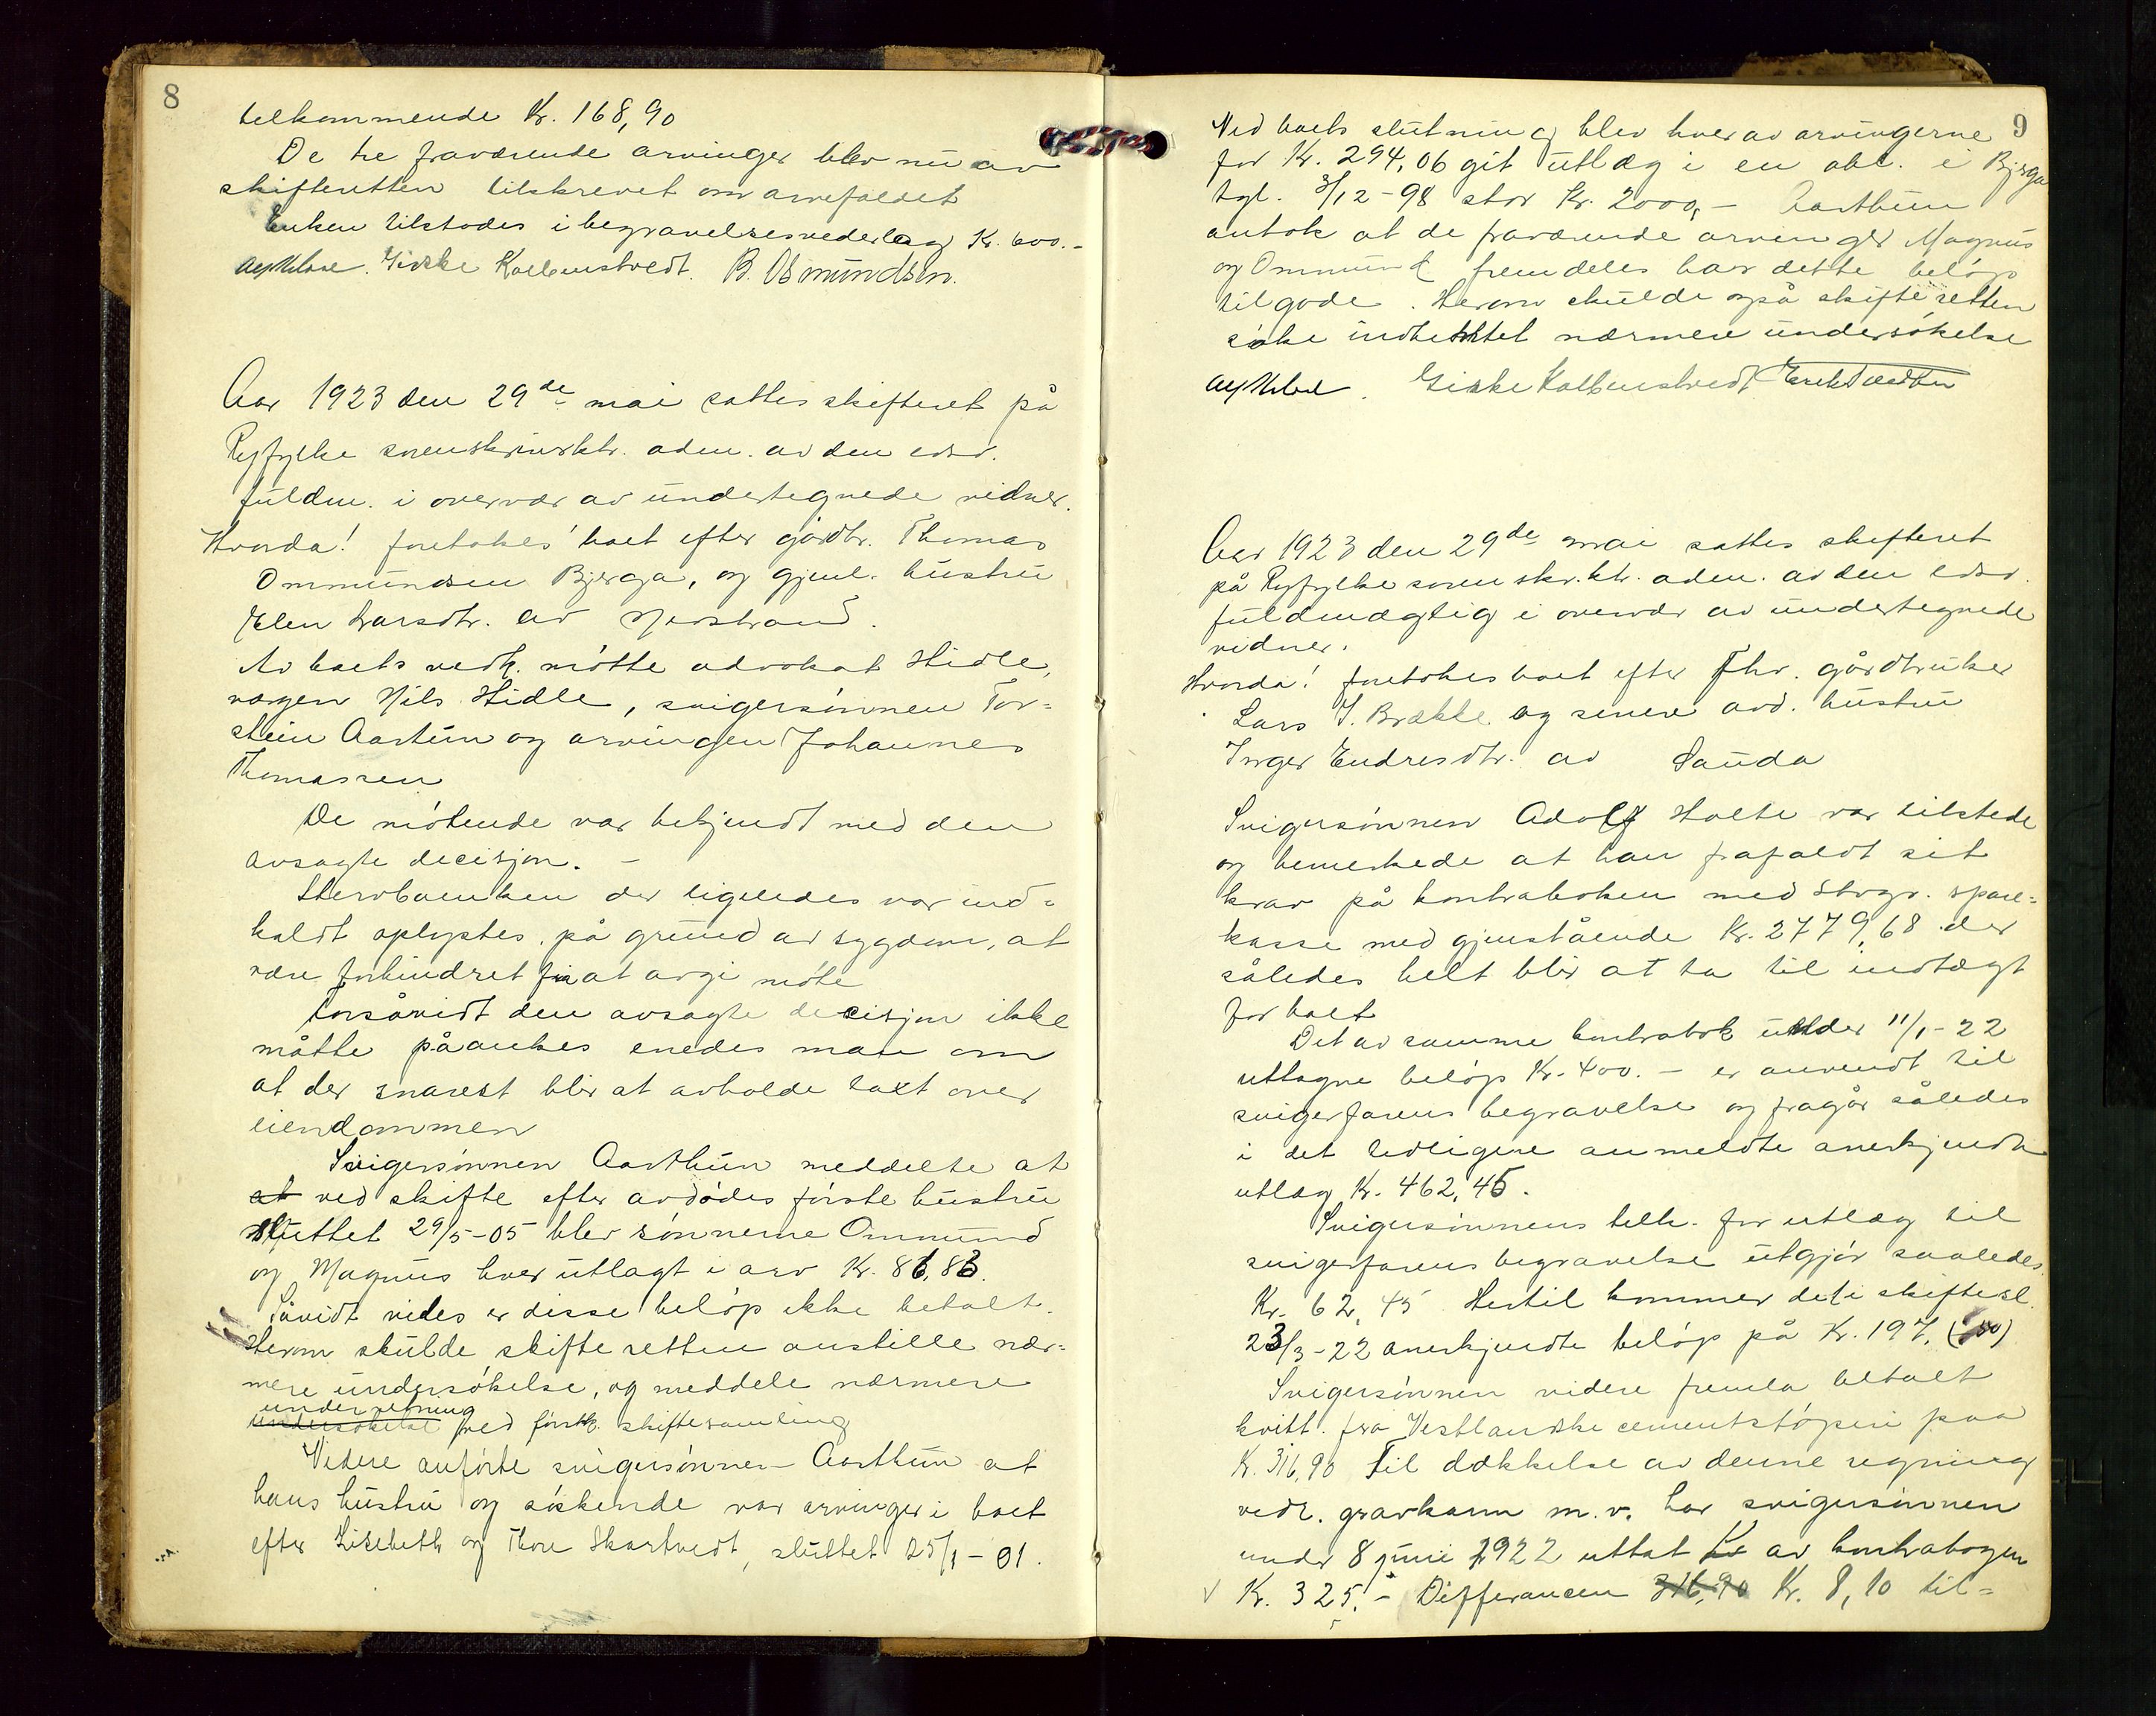 8
telkommende Kr. 168,90
De tre fraværende arvinger blev nu av
skifteretten tilskrevet om arvefaldet
Enken tilstodes i begravelsesvederlag Kr. 600.-
Giske Kolbenstvedt. B. Osmundsen.
Aar 1923 den 29de mai sattes skifteret på
Ryfylke sorenskriverktr. adm. av den edsv.
fuldm. i overvær av undertegnede vidner.
Hvorda! foretokes boet efter gårdbr. Thomas
Ommundsen Bjerga, og gjenl. hustru
Elen Larsdtr. av Nerstrand.
Av boets vedk. møtte advokat Hidle,
vergen Nils Hidle, svigersønnen Tor-
stein Aartun og arvingen Johannes
Thomassen
De møtende var bekjendt med den
avsagte decisjon. -
Stervboenken der ligeledes var ind-
kaldt oplystes på grund av sygdom, at
være forhindret fra at avgi møte
Forsåvidt den avsagte decisjon ikke
måtte påankes enedes man om
at der snarest blir at avholde taxt over
eiendommen
Svigersønnen Aarthun meddelte at
at ved skifte efter avdødes første hustru
sluttet 29/5-05 blev sønnerne Ommund
og Magnus hver utlagt i arv Kr. 86,83.
Såvidt vides er disse beløp ikke betalt.
Herom skulde skifteretten anstille nær-
mere undersøkelse, og meddele nærmere
underretning
undersøkelse ved førstk. skiftesamling
Videre anførte svigersønnen Aarthun at
hans hustru og søskende var arvinger i boet
efter Lisebeth og Tore Skartvedt, sluttet 25/1-01.
9
Ved boets slutning blev hver av arvingerne
for Kr. 294,06 git utlæg i en obl. i Bjerga
tgl. 3/12-98 stor Kr. 2000,- Aarthun
antok at de fraværende arvinger Magnus
og Ommund fremdeles har dette beløp
tilgode. Herom skulde også skifteretten
søke indhentet nærmere undersøkelse
Giske Kolbenstvedt
Aar 1923 den 29de mai sattes skifteret
på Ryfylke sorenskr.ktr. adm. av den edsv.
fuldmægtig i overvær av undertegnede
vidner.
Hvorda! foretokes boet efter fhv. gårdbruker
Lars J. Brække og senere avd. hustru
Inger Endresdtr. av Sauda
Svigersønnen Adolf Holte var tilstede
og bemerkede at han frafaldt sit
krav på kontraboken med Stvgr. spare-
kasse med gjenstående Kr. 2779,68 der
således helt blir at ta til indtægt
for boet
Det av samme kontrabok under 11/1-22
uttagne beløp Kr. 400.- er anvendt til
svigerfarens begravelse og fragår således
i det tidligere anmeldte anerkjendte
utlæg Kr. 462,45.
Svigersønnens tilh. for utlæg til
svigerfarens begravelse utgjør saaledes
Kr. 62,45 Hertil kommer det i skiftesl.
23/3-22 anerkjendte beløp på Kr. 197,
Svigersønnen videre fremla betalt
kvitt. fra Vestlandske cementstøperi paa
Kr. 316,90 Til dækkelse av denne regning
vedr. gravkarm m.v. har svigersønnen
under 8 juni 1922 uttat Kr av kontrabogen
Kr. 325.- Differancen 316,90 Kr. 8,10 til-